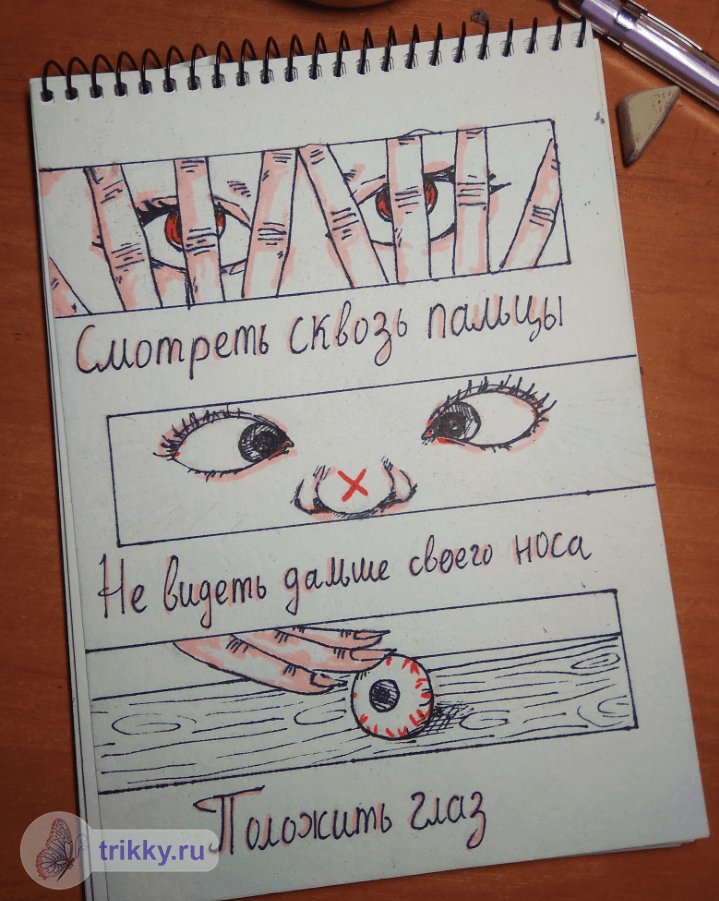 Смотреть сквозь пальцы
Не видеть дальше своего носа
Положить глаз
trikky.ru